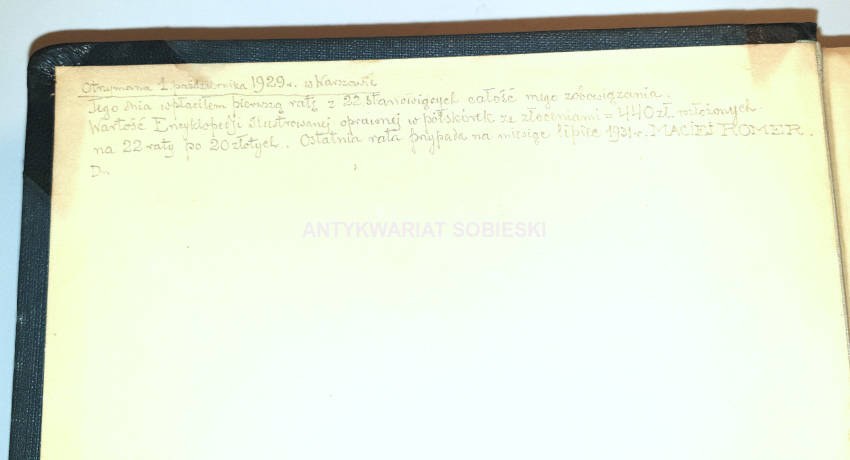 Otrzymana 1. października 1929 r. w Warszawie
Tego dnia wpłaciłem pierwszą ratę z 22 stanowiących całość mego zobowiązania.
Wartość Encyklopedji ilustrowanej oprawnej w półskórek ze złoceniami = 440 zł. rozłożonych
na 22 raty po 20 złotych. Ostatnia rata przypada na miesiąc lipiec 1931 r. MACIEJ ROMER.
Dn
ANTYKWARIAT SOBIESKI